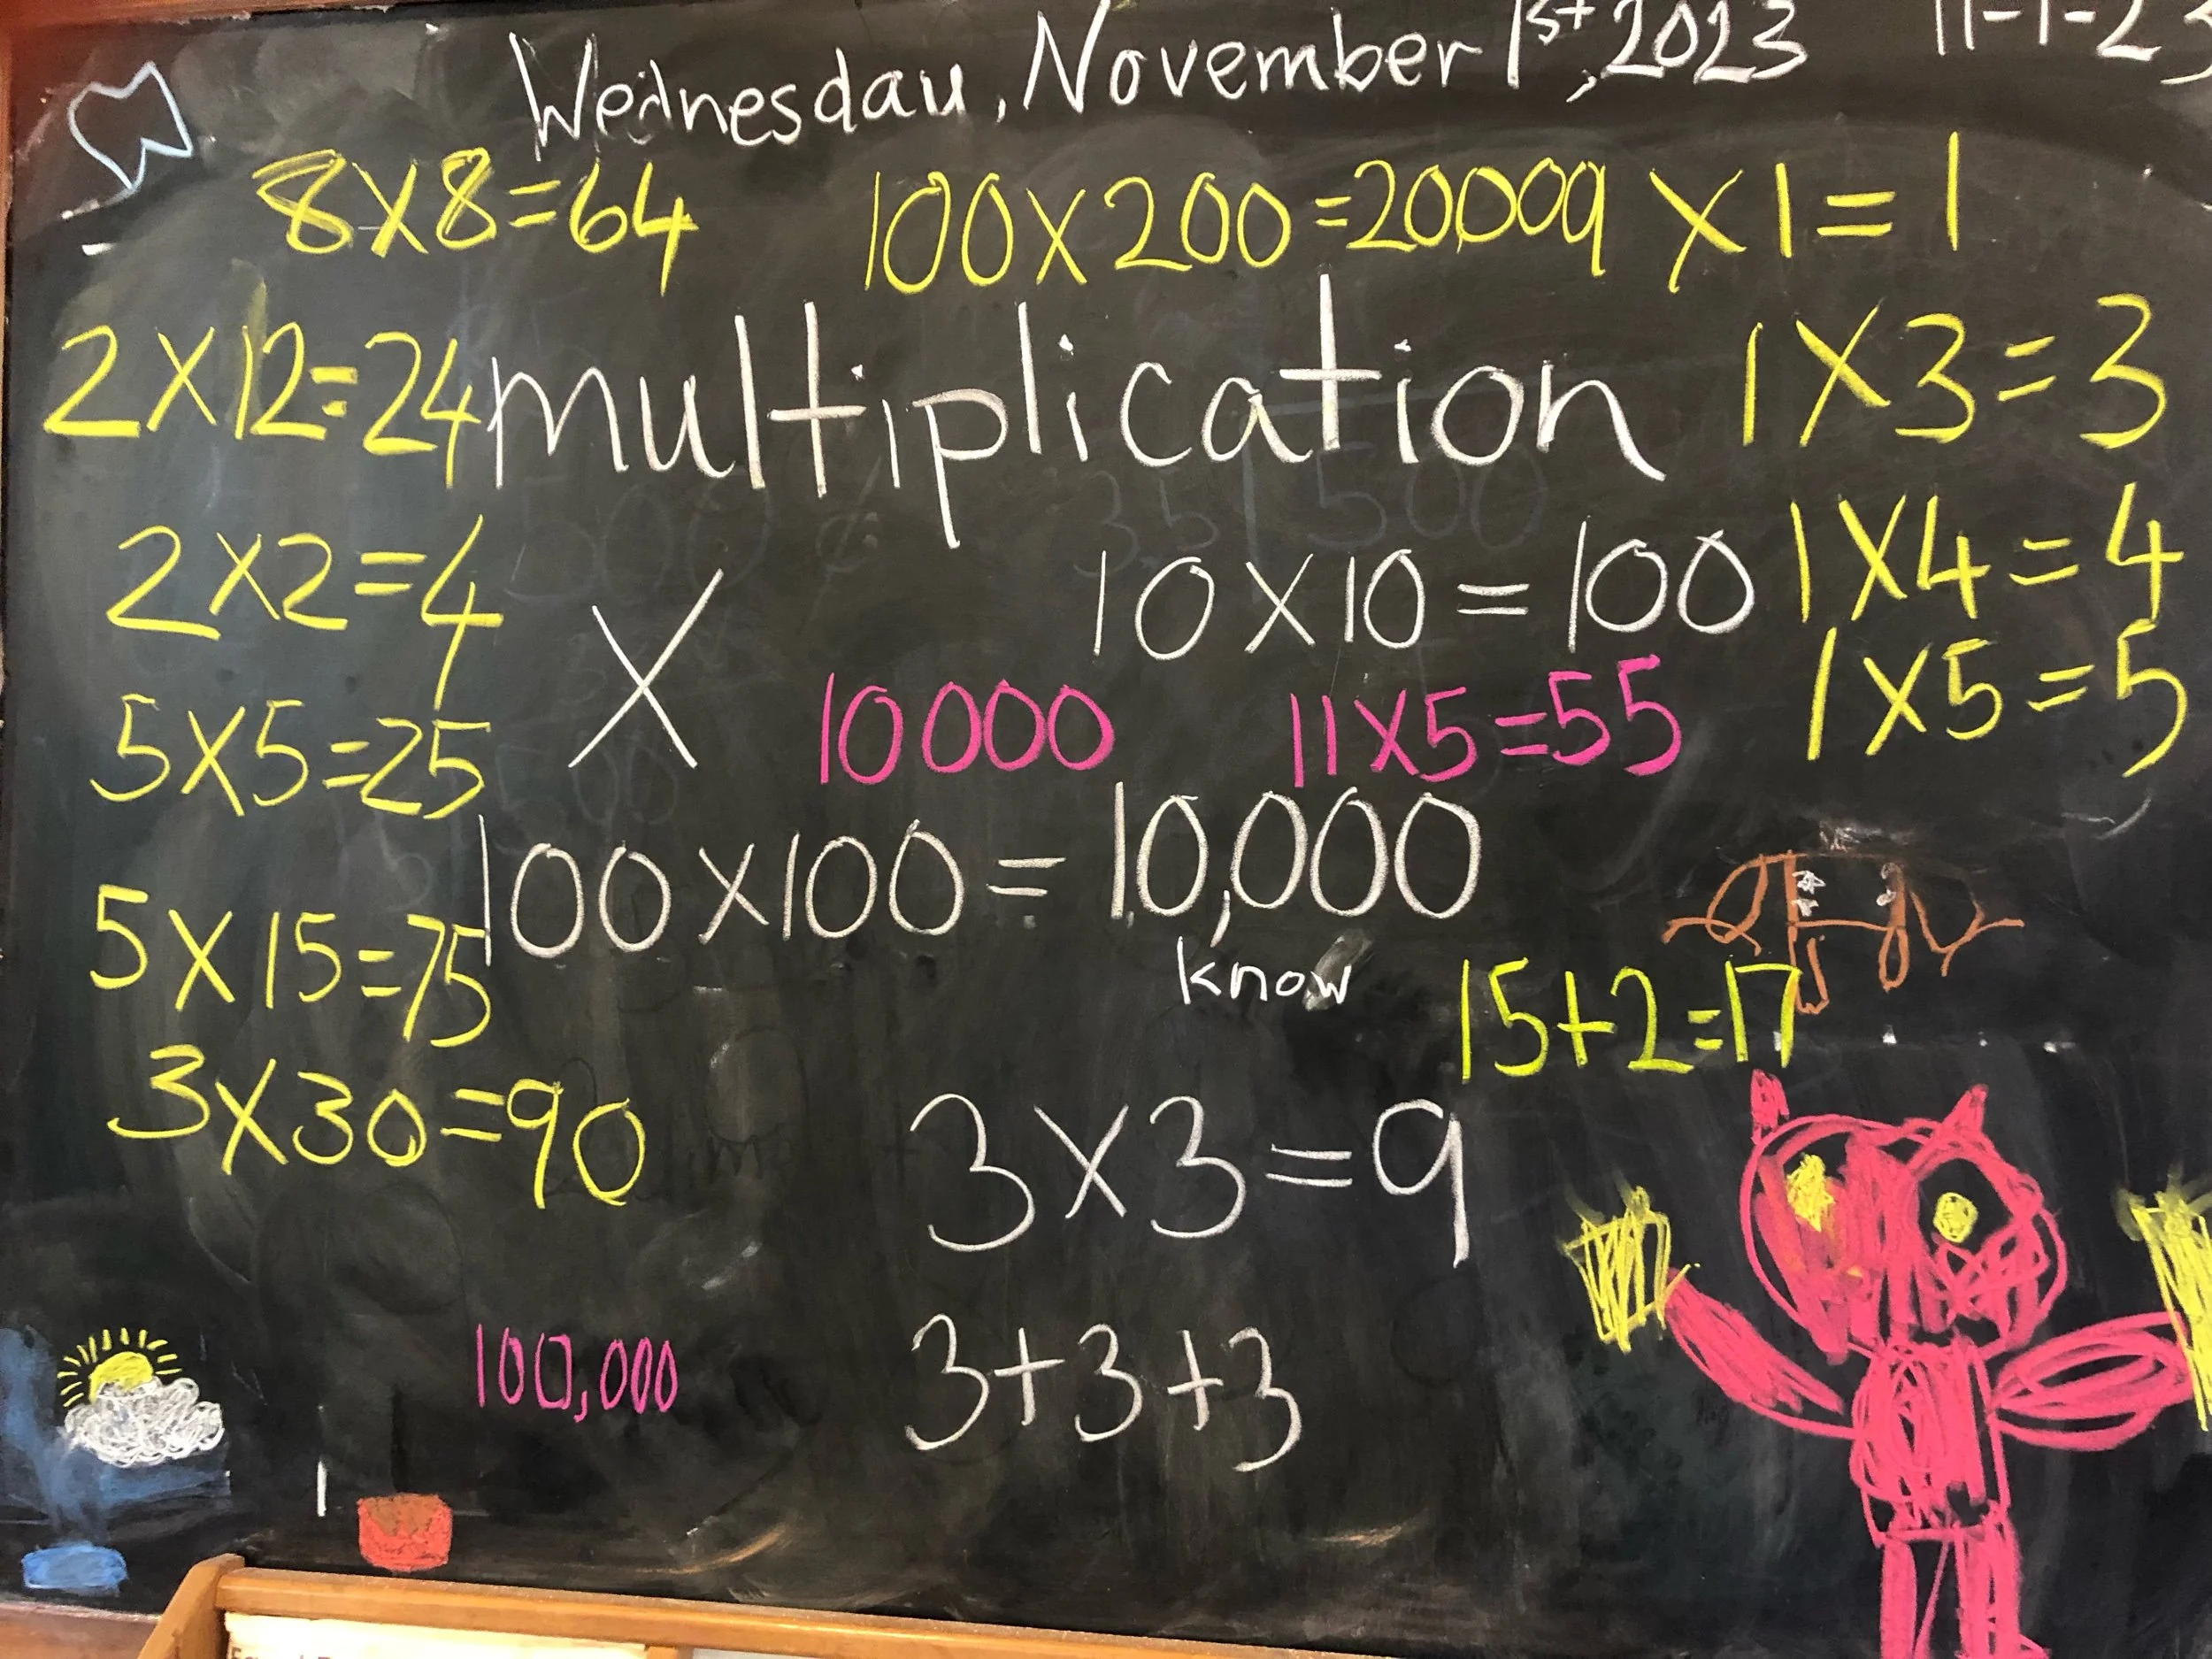 Wednesdau, November 1st, 2023 11-1-23
8x8=64 100x200=20009 x1=1
2x12=24 multiplication 1x3=3
2x2=4 X 10x10=100 1x4=4
5x5=25 10000 11x5=55 1x5=5
100x100=10,000
5x15=75 know 15+2=17
3x30=90 3x3=9
100,000 3+3+3